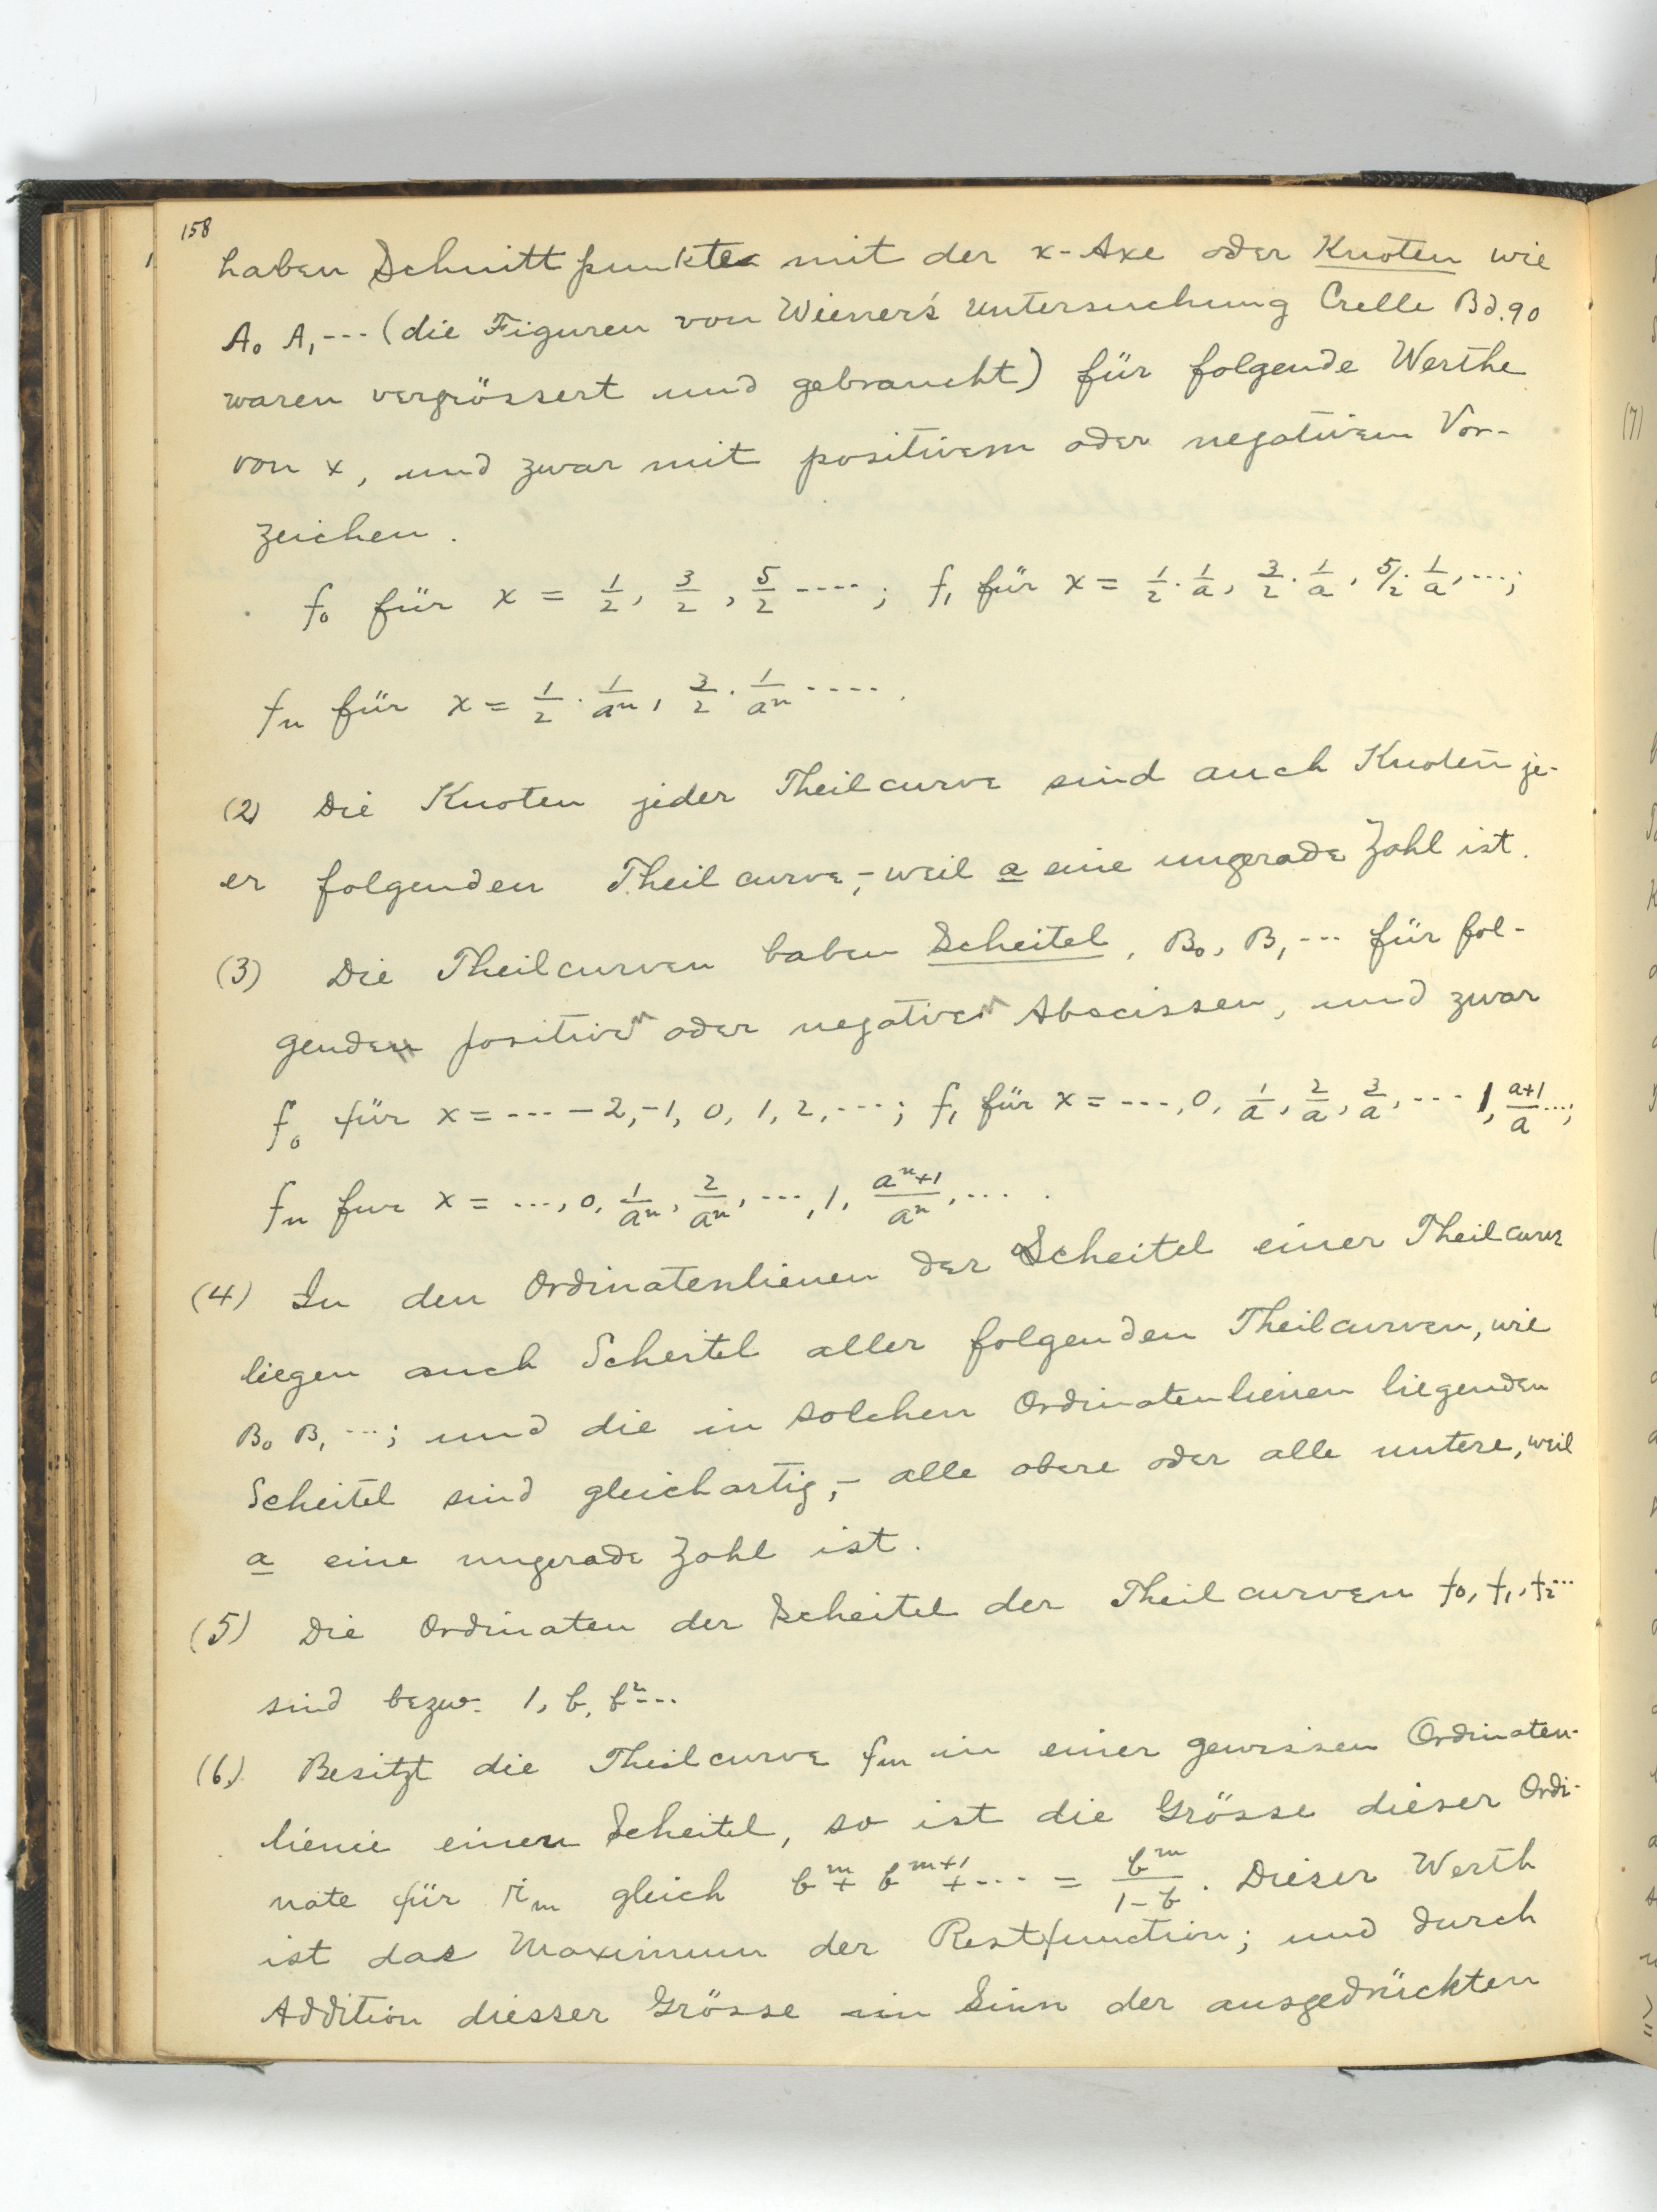 158
haben Schnittpunkte mit der x-Axe oder Knoten wie
A₀ A₁ --- (die Figuren von Wiener's Untersuchung Crelle Bd. 90
waren vergrössert und gebraucht) für folgende Werthe
von x, und zwar mit positivem oder negativem Vor-
zeichen.
f₀ für x = 1/2, 3/2, 5/2 ----; f₁ für x = 1/2 · 1/a, 3/2 · 1/a, 5/2 · 1/a, ---;
fₙ für x = 1/2 · 1/aⁿ, 3/2 · 1/aⁿ ----.
(2) Die Knoten jeder Theilcurve sind auch Knoten je-
er folgenden Theilcurve, – weil a eine ungerade Zahl ist.
(3) Die Theilcurven haben Scheitel, B₀, B₁ --- für fol-
genden positiven oder negativen Abscissen, und zwar
f₀ für x = --- -2, -1, 0, 1, 2, ---; f₁ für x = ---, 0, 1/a, 2/a, 3/a, --- 1, (a+1)/a ---;
fₙ fur x = ---, 0, 1/aⁿ, 2/aⁿ, ---, 1, (aⁿ+1)/aⁿ, --- .
(4) In den Ordinatenlienen der Scheitel einer Theilcurve
liegen auch Scheitel aller folgenden Theilcurven, wie
B₀ B₁ ---; und die in solchen Ordinatenlienen liegenden
Scheitel sind gleichartig, – alle obere oder alle untere, weil
a eine ungerade Zahl ist.
(5) Die Ordinaten der Scheitel der Theilcurven f₀, f₁, f₂ ---
sind bezw. 1, b, b² ---
(6) Besitzt die Theilcurve fₘ in einer gewissen Ordinaten-
lienie einen Scheitel, so ist die Grösse dieser Ordi-
nate für rₘ gleich bᵐ + bᵐ⁺¹ + --- = bᵐ/(1-b). Dieser Werth
ist das Maximum der Restfunction; und durch
Addition diesser Grösse im Sinn der ausgedrückten